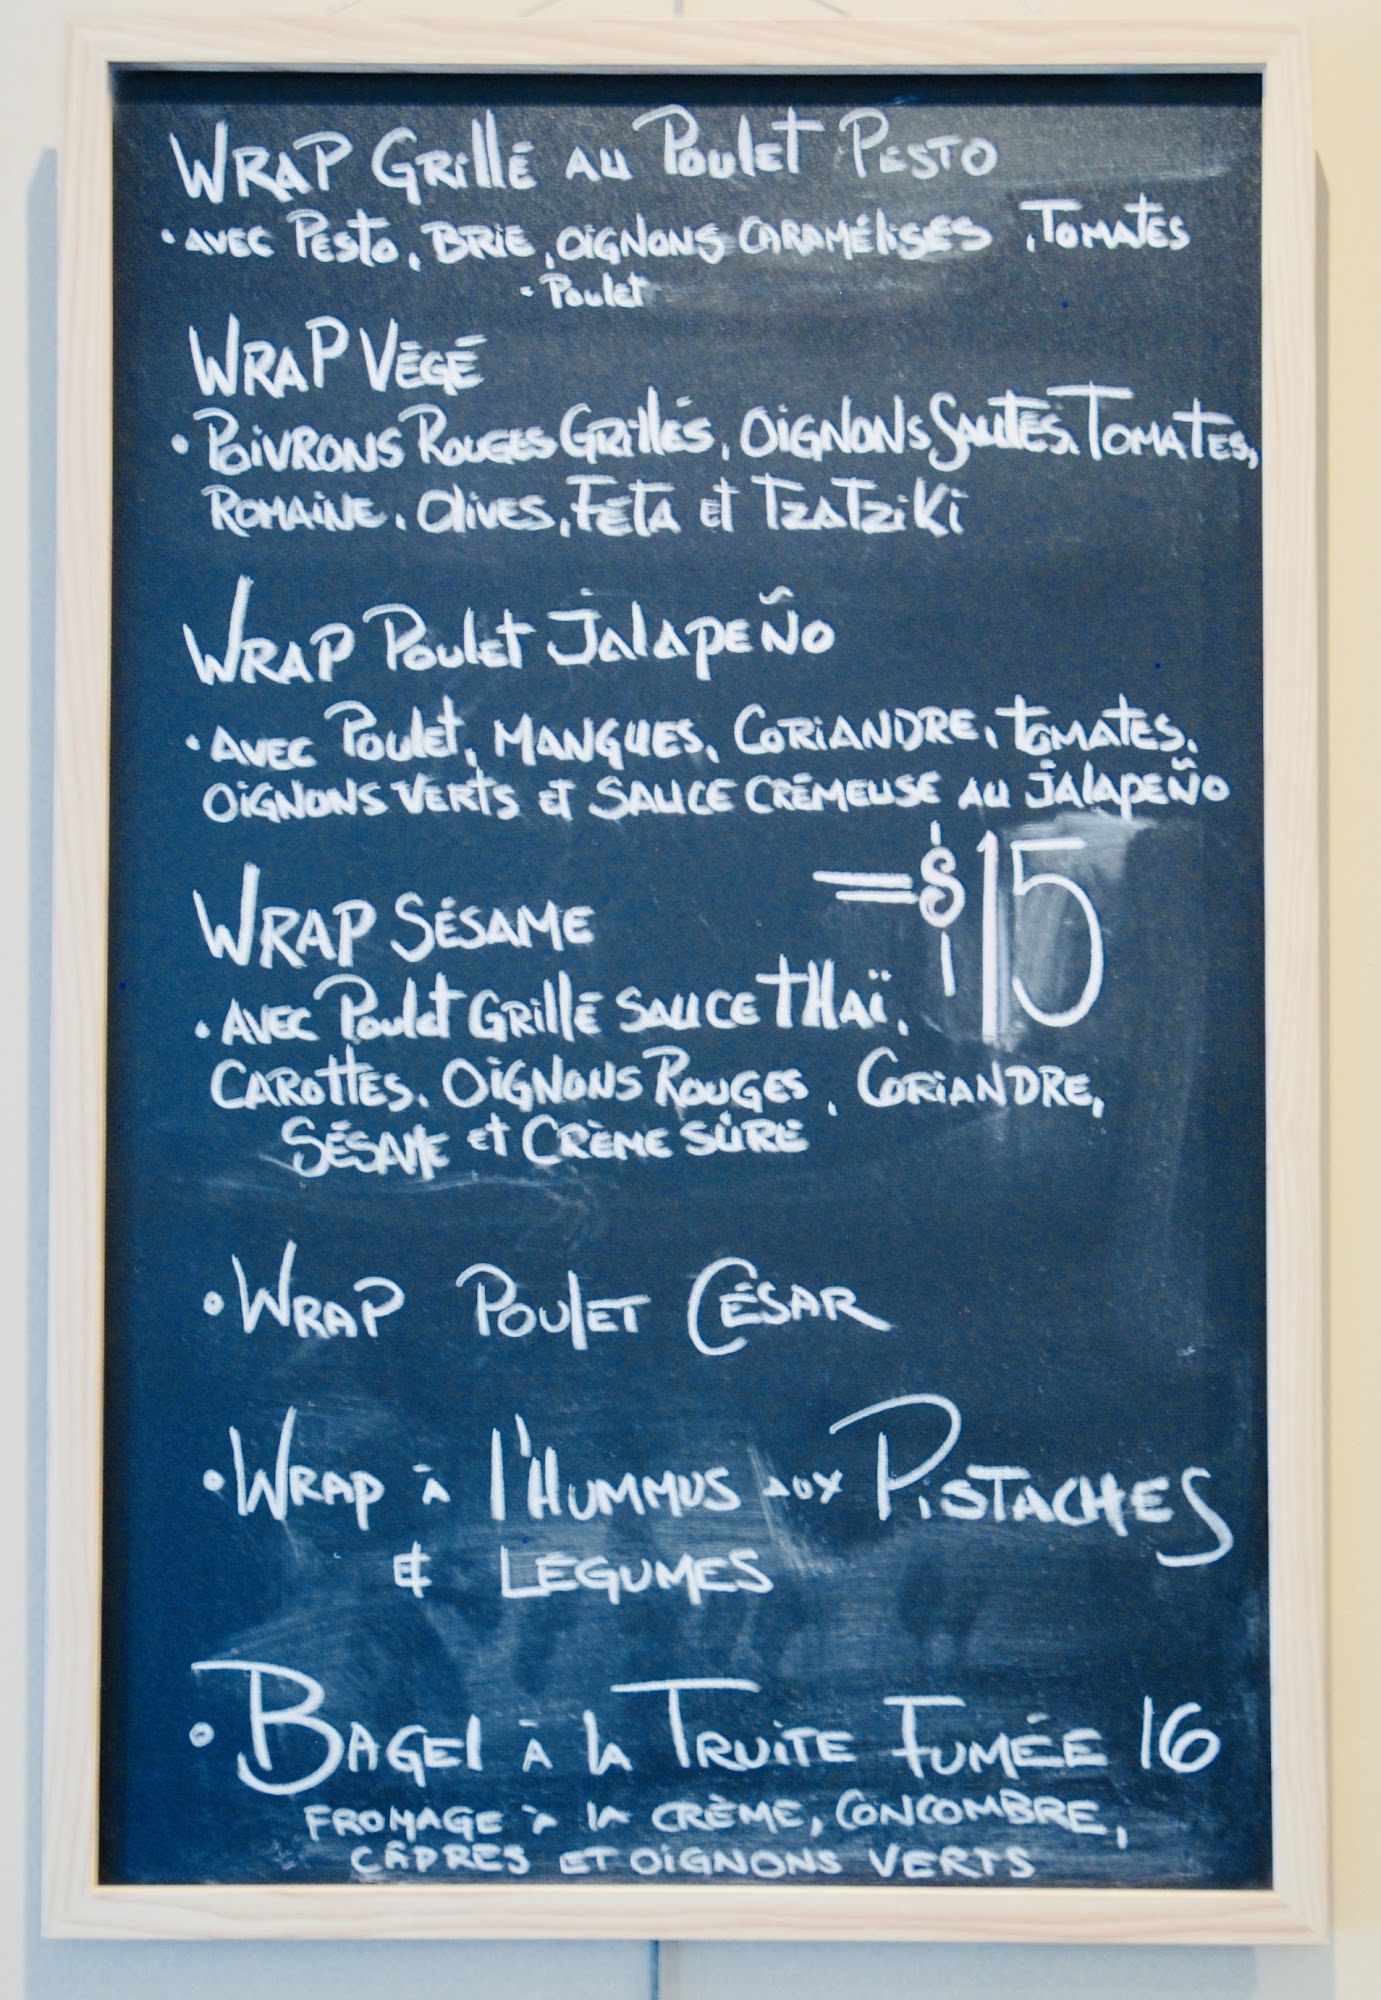 WRAP GRILLÉ AU POULET PESTO
• AVEC PESTO, BRIE, OIGNONS CARAMÉLISÉS, TOMATES
• POULET
WRAP VÉGÉ
• POIVRONS ROUGES GRILLÉS, OIGNONS SAUTÉS, TOMATES,
ROMAINE, OLIVES, FÉTA ET TZATZIKI
WRAP POULET JALAPEÑO
• AVEC POULET, MANGUES, CORIANDRE, TOMATES,
OIGNONS VERTS ET SAUCE CRÉMEUSE AU JALAPEÑO
= $15
WRAP SÉSAME
• AVEC POULET GRILLÉ SAUCE THAÏ,
CAROTTES, OIGNONS ROUGES, CORIANDRE,
SÉSAME ET CRÈME SÛRE
• WRAP POULET CÉSAR
• WRAP À L'HUMMUS AUX PISTACHES
ET LÉGUMES
• BAGEL À LA TRUITE FUMÉE 16
FROMAGE À LA CRÈME, CONCOMBRE,
CÂPRES ET OIGNONS VERTS